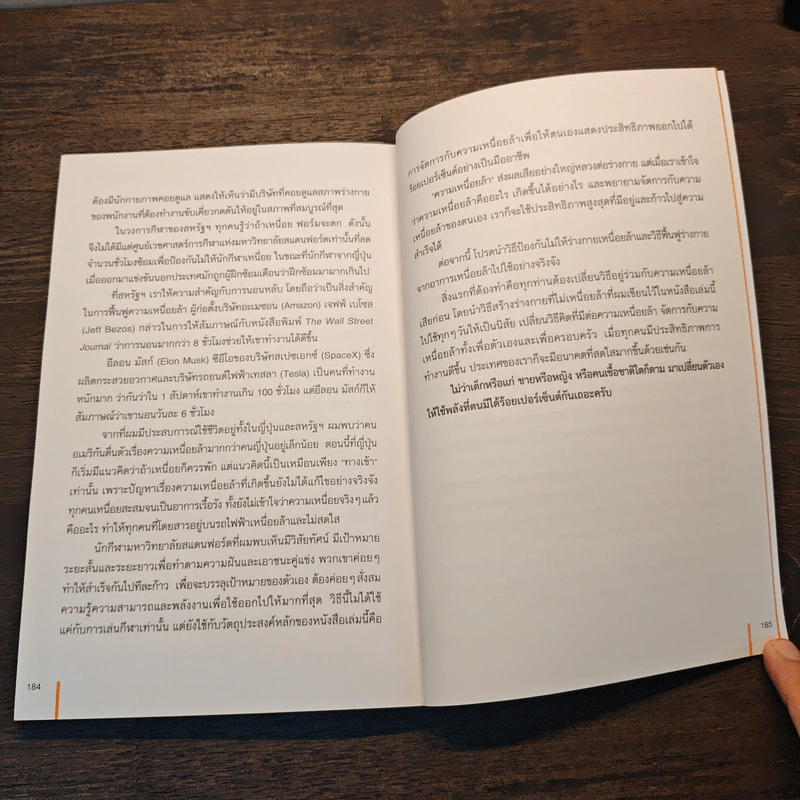 ต้องมีนักกายภาพคอยดูแล แสดงให้เห็นว่ามีบริษัทที่คอยดูแลสภาพร่างกาย
ของพนักงานที่ต้องทำงานขับเคี่ยวกดดันให้อยู่ในสภาพที่สมบูรณ์ที่สุด
ในวงการกีฬาของสหรัฐฯ ทุกคนรู้ว่าถ้าเหนื่อย ฟอร์มจะตก ดังนั้น
จึงไม่ได้มีแต่ศูนย์เวชศาสตร์การกีฬาแห่งมหาวิทยาลัยสแตนฟอร์ดเท่านั้นที่ลด
จำนวนชั่วโมงซ้อมเพื่อป้องกันไม่ให้นักกีฬาเหนื่อย ในขณะที่นักกีฬาจากญี่ปุ่น
เมื่อออกมาแข่งขันนอกประเทศมักถูกผู้ฝึกซ้อมเตือนว่าฝึกซ้อมมามากเกินไป
ที่สหรัฐฯ เราให้ความสำคัญกับการนอนหลับ โดยถือว่าเป็นสิ่งสำคัญ
ในการฟื้นฟูความเหนื่อยล้า ผู้ก่อตั้งบริษัทอะเมซอน (Amazon) เจฟฟ์ เบโซส
(Jeff Bezos) กล่าวในการให้สัมภาษณ์กับหนังสือพิมพ์ The Wall Street
Journal ว่าการนอนมากกว่า 8 ชั่วโมงช่วยให้เขาทำงานได้ดีขึ้น
อีลอน มัสก์ (Elon Musk) ซีอีโอของบริษัทสเปซเอกซ์ (SpaceX) ซึ่ง
ผลิตกระสวยอวกาศและบริษัทรถยนต์ไฟฟ้าเทสลา (Tesla) เป็นคนที่ทำงาน
หนักมาก ว่ากันว่าใน 1 สัปดาห์เขาทำงานเกิน 100 ชั่วโมง แต่อีลอน มัสก์ก็ให้
สัมภาษณ์ว่าเขานอนวันละ 6 ชั่วโมง
จากที่ผมมีประสบการณ์ใช้ชีวิตอยู่ทั้งในญี่ปุ่นและสหรัฐฯ ผมพบว่าคน
อเมริกันตื่นตัวเรื่องความเหนื่อยล้ามากกว่าคนญี่ปุ่นอยู่เล็กน้อย ตอนนี้ที่ญี่ปุ่น
ก็เริ่มมีแนวคิดว่าถ้าเหนื่อยก็ควรพัก แต่แนวคิดนี้เป็นเหมือนเพียง "ทางเข้า"
เท่านั้น เพราะปัญหาเรื่องความเหนื่อยล้าที่เกิดขึ้นยังไม่ได้แก้ไขอย่างจริงจัง
ทุกคนเหนื่อยสะสมจนเป็นอาการเรื้อรัง ทั้งยังไม่เข้าใจว่าความเหนื่อยจริงๆ แล้ว
คืออะไร ทำให้ทุกคนที่โดยสารอยู่บนรถไฟฟ้าเหนื่อยล้าและไม่สดใส
นักกีฬามหาวิทยาลัยสแตนฟอร์ดที่ผมพบเห็นมีวิสัยทัศน์ มีเป้าหมาย
ระยะสั้นและระยะยาวเพื่อทำตามความฝันและเอาชนะคู่แข่ง พวกเขาค่อยๆ
ทำให้สำเร็จกันไปทีละก้าว เพื่อจะบรรลุเป้าหมายของตัวเอง ต้องค่อยๆ สั่งสม
ความรู้ความสามารถและพลังงานเพื่อใช้ออกไปให้มากที่สุด วิธีนี้ไม่ได้ใช้
แค่กับการเล่นกีฬาเท่านั้น แต่ยังใช้กับวัตถุประสงค์หลักของหนังสือเล่มนี้คือ
184
การจัดการกับความเหนื่อยล้าเพื่อให้ตนเองแสดงประสิทธิภาพออกไปได้
ร้อยเปอร์เซ็นต์อย่างเป็นมืออาชีพ
"ความเหนื่อยล้า" ส่งผลเสียอย่างใหญ่หลวงต่อร่างกาย แต่เมื่อเราเข้าใจ
ว่าความเหนื่อยล้าคืออะไร เกิดขึ้นได้อย่างไร และพยายามจัดการกับความ
เหนื่อยล้าของตนเอง เราก็จะใช้ประสิทธิภาพสูงสุดที่มีอยู่และก้าวไปสู่ความ
สำเร็จได้
ต่อจากนี้ โปรดนำวิธีป้องกันไม่ให้ร่างกายเหนื่อยล้าและวิธีฟื้นฟูร่างกาย
จากอาการเหนื่อยล้าไปใช้อย่างจริงจัง
สิ่งแรกที่ต้องทำคือทุกท่านต้องเปลี่ยนวิธีอยู่ร่วมกับความเหนื่อยล้า
เสียก่อน โดยนำวิธีสร้างร่างกายที่ไม่เหนื่อยล้าที่ผมเขียนไว้ในหนังสือเล่มนี้
ไปใช้ทุกๆ วันให้เป็นนิสัย เปลี่ยนวิธีคิดที่มีต่อความเหนื่อยล้า จัดการกับความ
เหนื่อยล้าทั้งเพื่อตัวเองและเพื่อครอบครัว เมื่อทุกคนมีประสิทธิภาพการ
ทำงานดีขึ้น ประเทศของเราก็จะมีอนาคตที่สดใสมากขึ้นด้วยเช่นกัน
ไม่ว่าเด็กหรือแก่ ชายหรือหญิง หรือคนเชื้อชาติใดก็ตาม มาเปลี่ยนตัวเอง
ให้ใช้พลังที่ตนมีได้ร้อยเปอร์เซ็นต์กันเถอะครับ
185